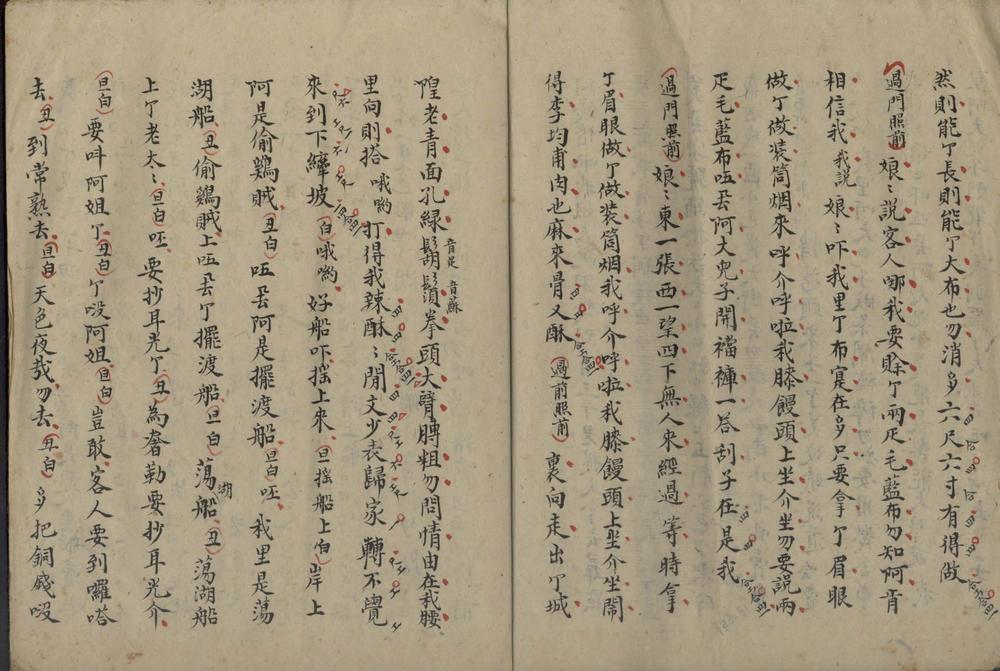 然則能了長則能了大布也勿消多六尺六寸有得做
過門照前 娘〻說客人哪我要賒了兩疋毛藍布勿知阿肯
相信我我說娘〻吓我里了布寔在多只要拿了眉眼
做了做裝筒烟來呼介呼啦我膝饅頭上坐介坐勿要說兩
疋毛藍布咂厾阿大兒子開襠褲一答刮子在是我
過門照前 娘〻東一張西一望四下無人來經過等時拿
了眉眼做了做裝筒烟我呼介呼啦我膝饅頭上坐介坐鬧
得李均甫肉也麻來骨又酥 過前照前 裏向走出了城
隍老青面孔綠鬍鬚拳頭大臂膊粗勿問情由在我腰
音是 音蘇
里向則搭哦喲打得我辣酥〻閒文少表歸家轉不覺
來到下縴坡 白 哦喲好船吓搖上來 旦搖船上白 岸上
阿是偷鷄賊 丑白 咂厾阿是擺渡船 旦白 呸我里是蕩
湖船 丑 偷鷄賊上咂去了擺渡船 旦白 蕩湖船 丑 蕩湖船
上了老大〻 旦白 呸要抄耳光了 丑 為奢勒要抄耳光介
旦白 要呌阿姐了 丑白 了沒阿姐 旦白 豈敢客人要到囉嗒
去 丑 到常熟去 旦白 天色夜哉勿去 丑白 多把銅錢啜